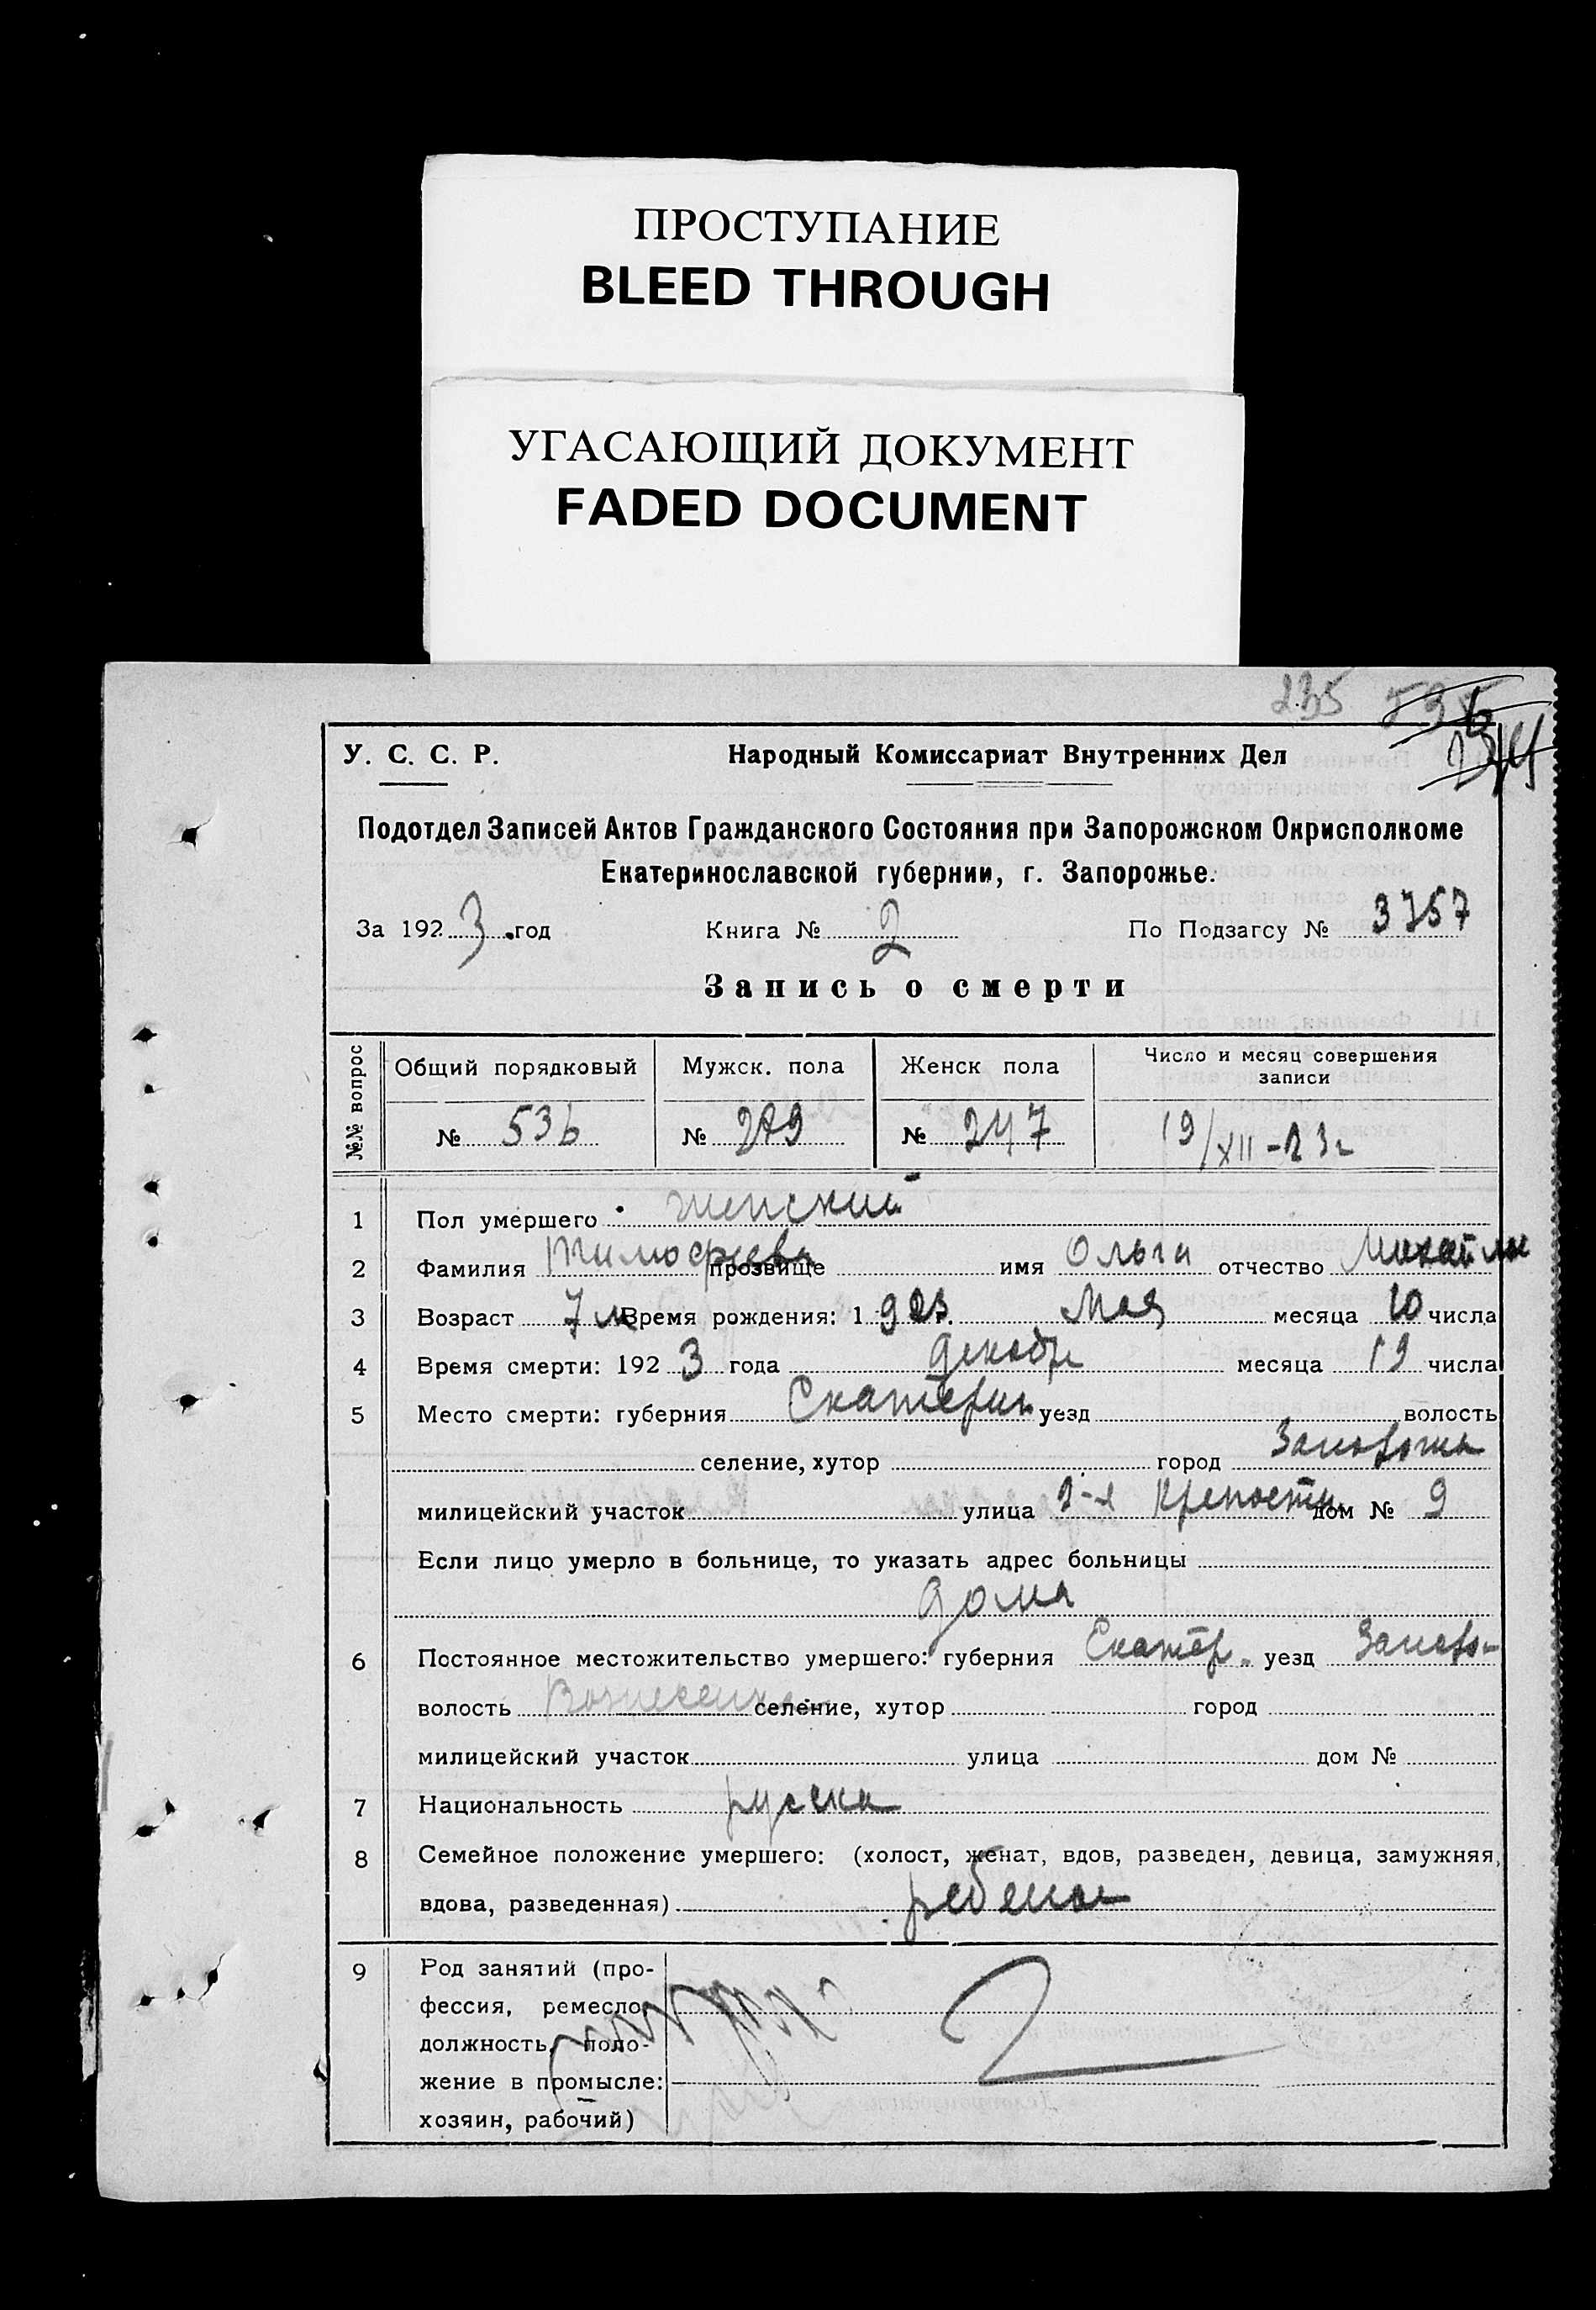 ПРОСТУПАНИЕ
BLEED THROUGH
УГАСАЮЩИЙ ДОКУМЕНТ
FADED DOCUMENT
235 536
У. С. С. Р. Народный Комиссариат Внутренних Дел
Подотдел Записей Актов Гражданского Состояния при Запорожском Окрисполкоме
Екатеринославской губернии, г. Запорожье.
За 1923 год Книга № 2 По Подзагсу № 3757
Запись о смерти
№№ вопрос Общий порядковый Мужск. пола Женск пола Число и месяц совершения
записи
№ 536 № 289 № 247 19/XII-23г
1 Пол умершего женский
2 Фамилия Тимофеева прозвище имя Ольга отчество Михайл
3 Возраст 7 м Время рождения: 1923. Мая месяца 10 числа
4 Время смерти: 1923 года декабр месяца 19 числа
5 Место смерти: губерния Екатерин уезд волость
селение, хутор город Запорожье
милицейский участок улица 2-я Крепостн дом № 9
Если лицо умерло в больнице, то указать адрес больницы
дома
6 Постоянное местожительство умершего: губерния Екатер. уезд Запор-
волость Вознесенка селение, хутор город
милицейский участок улица дом №
7 Национальность русска
8 Семейное положение умершего: (холост, женат, вдов, разведен, девица, замужняя,
вдова, разведенная) ребенок
9 Род занятий (про-
фессия, ремесло,
должность, поло-
жение в промысле:
хозяин, рабочий)